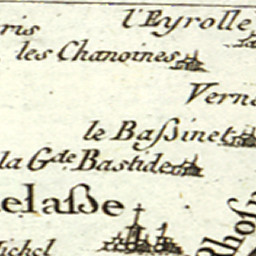 l'Eyrolle
ris
les Chanoines
Verne
le Baßinet
la G.de Bastide
elaße
Michel
Rhosn